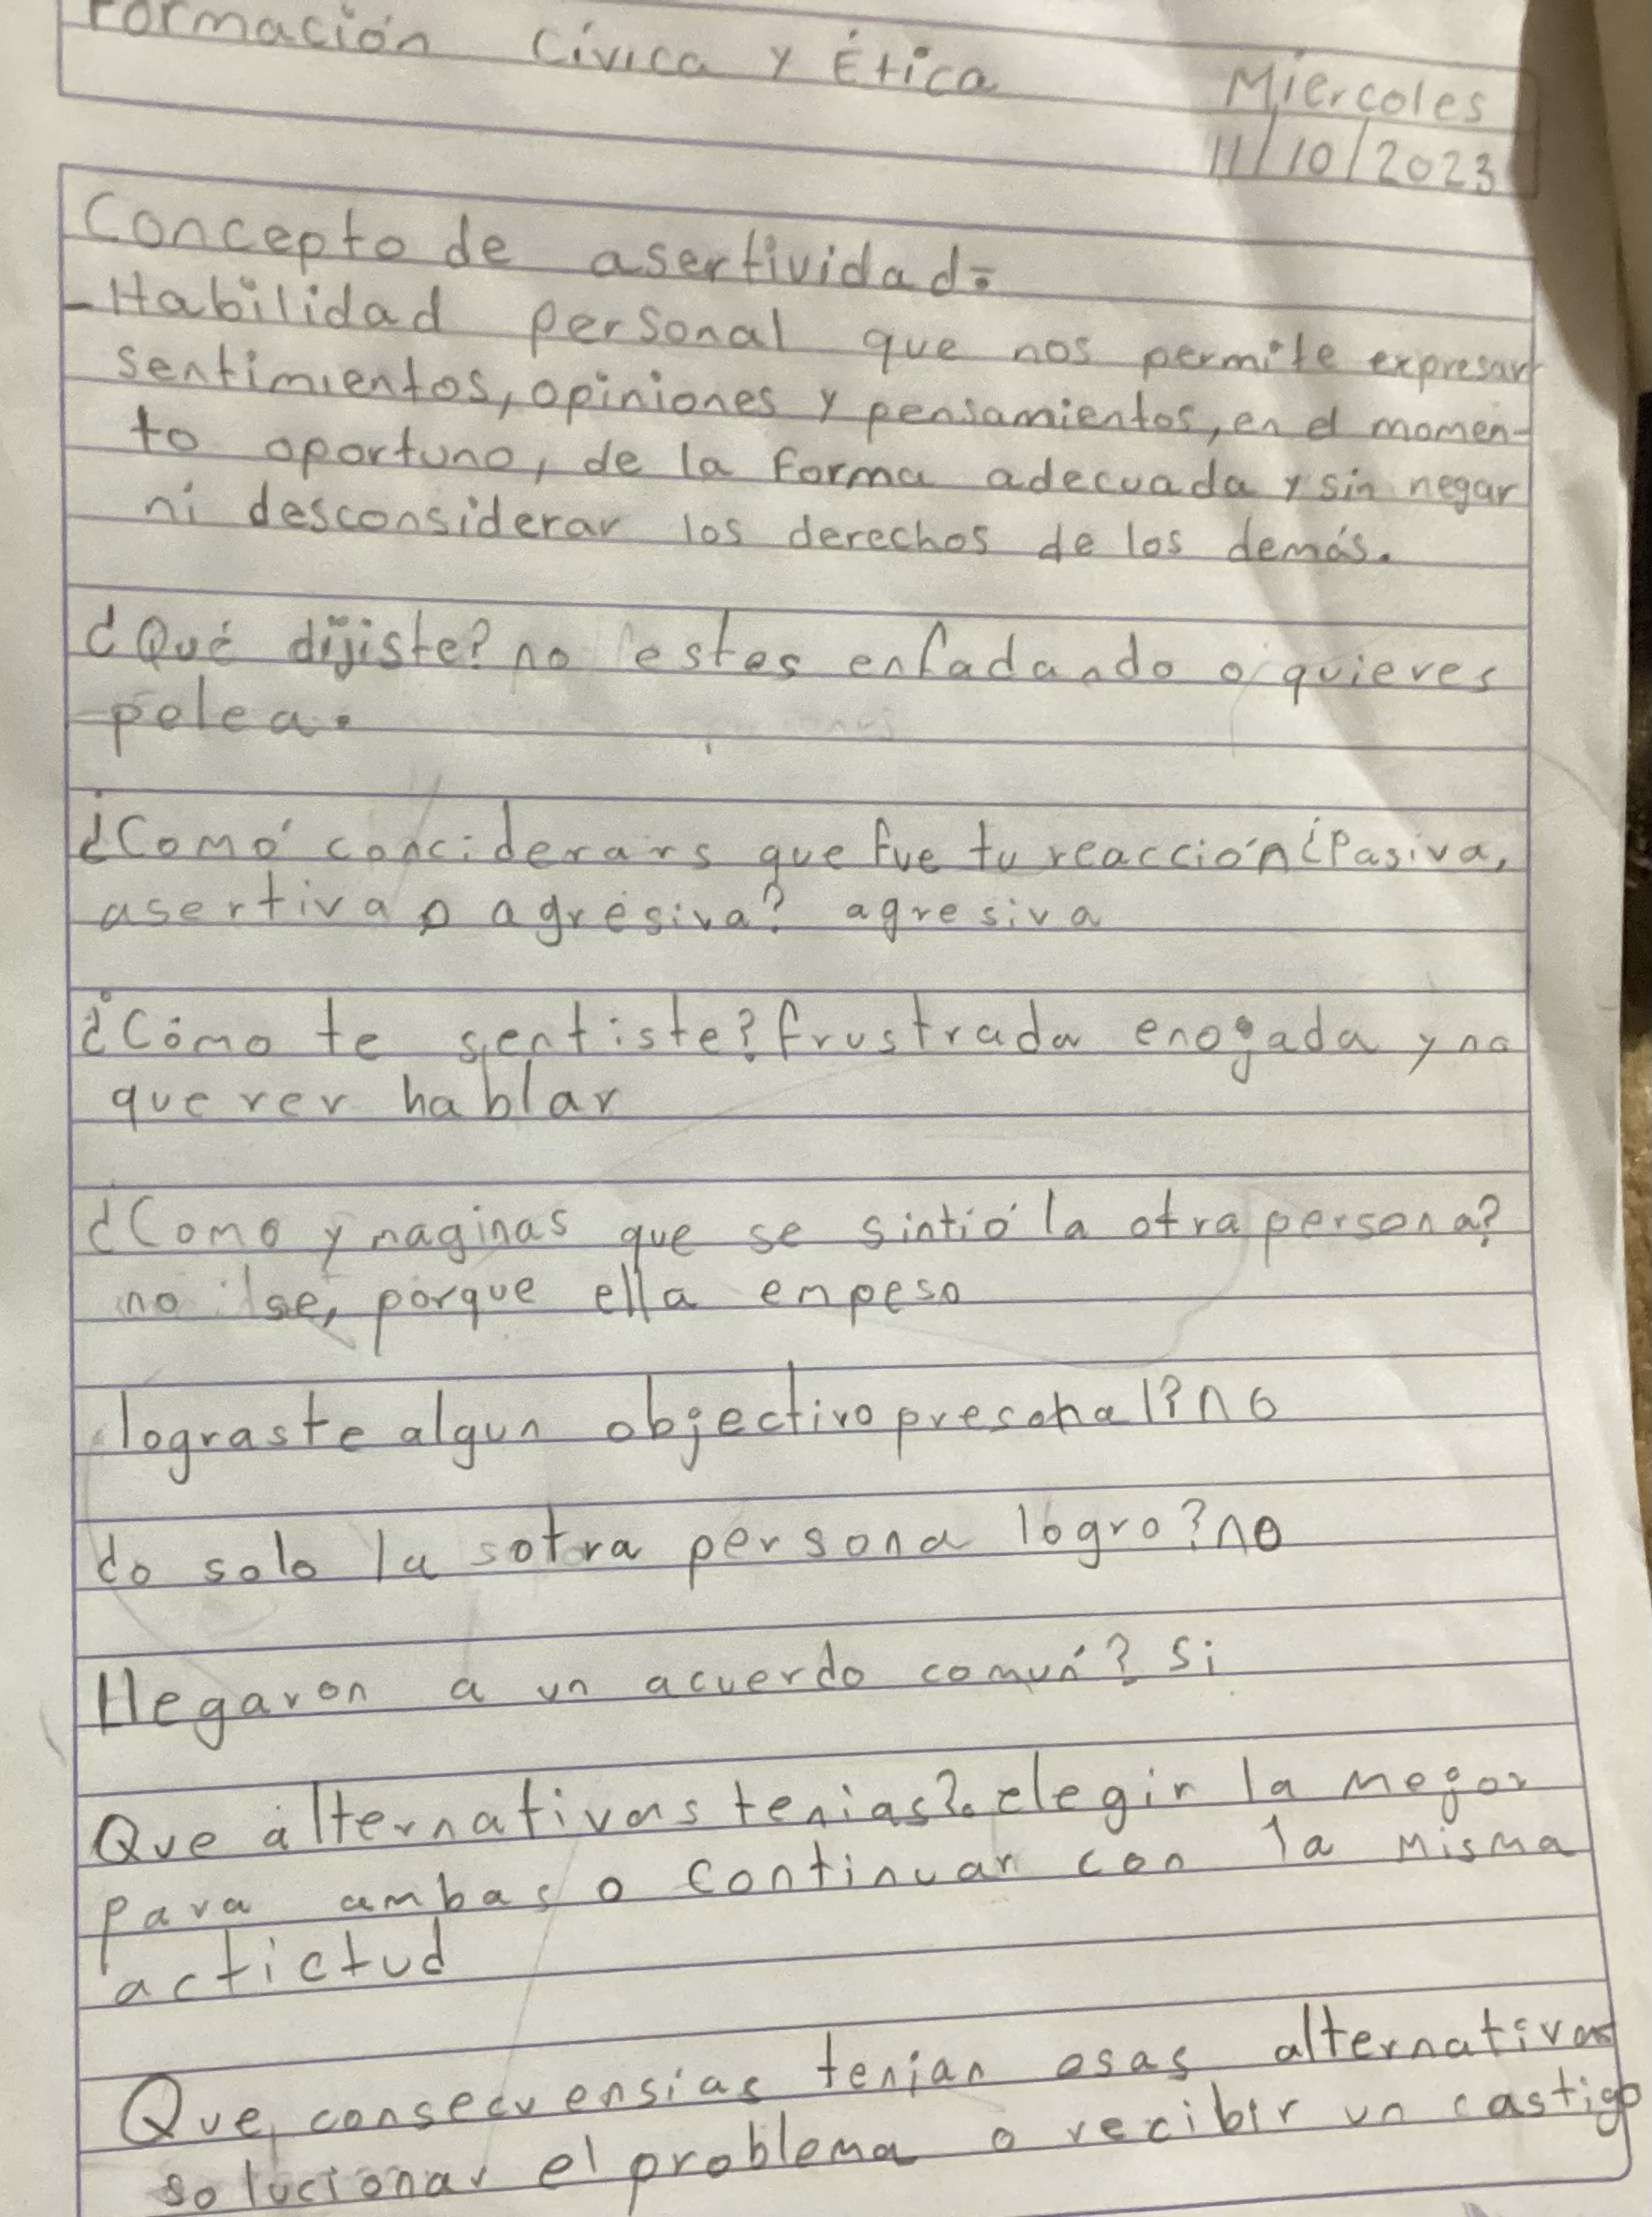 Formación Cívica y Ética
Miercoles
11/10/2023
Concepto de asertividad:
-Habilidad personal que nos permite expresar
sentimientos, opiniones y pensamientos, en el momen-
to oportuno, de la forma adecuada y sin negar
ni desconsiderar los derechos de los demás.
¿Qué dijiste? no estes enfadando o quieres
pelea.
¿Comó conciderars que fue tu reacción ¿Pasiva,
asertiva o agresiva? agresiva
¿Cómo te sentiste? frustrada enojada y no
querer hablar
¿Como ymaginas que se sintió la otra persona?
no se, porque ella empeso
lograste algun objectivo presonal? no
do solo la sotra persona logro? no
Llegaron a un acuerdo comun? Si
Que alternativas tenias?. elegir la mejor
para ambas o continuar con la misma
actictud
Que consecuensias tenian esas alternativas
solucionar el problema o recibir un castigo